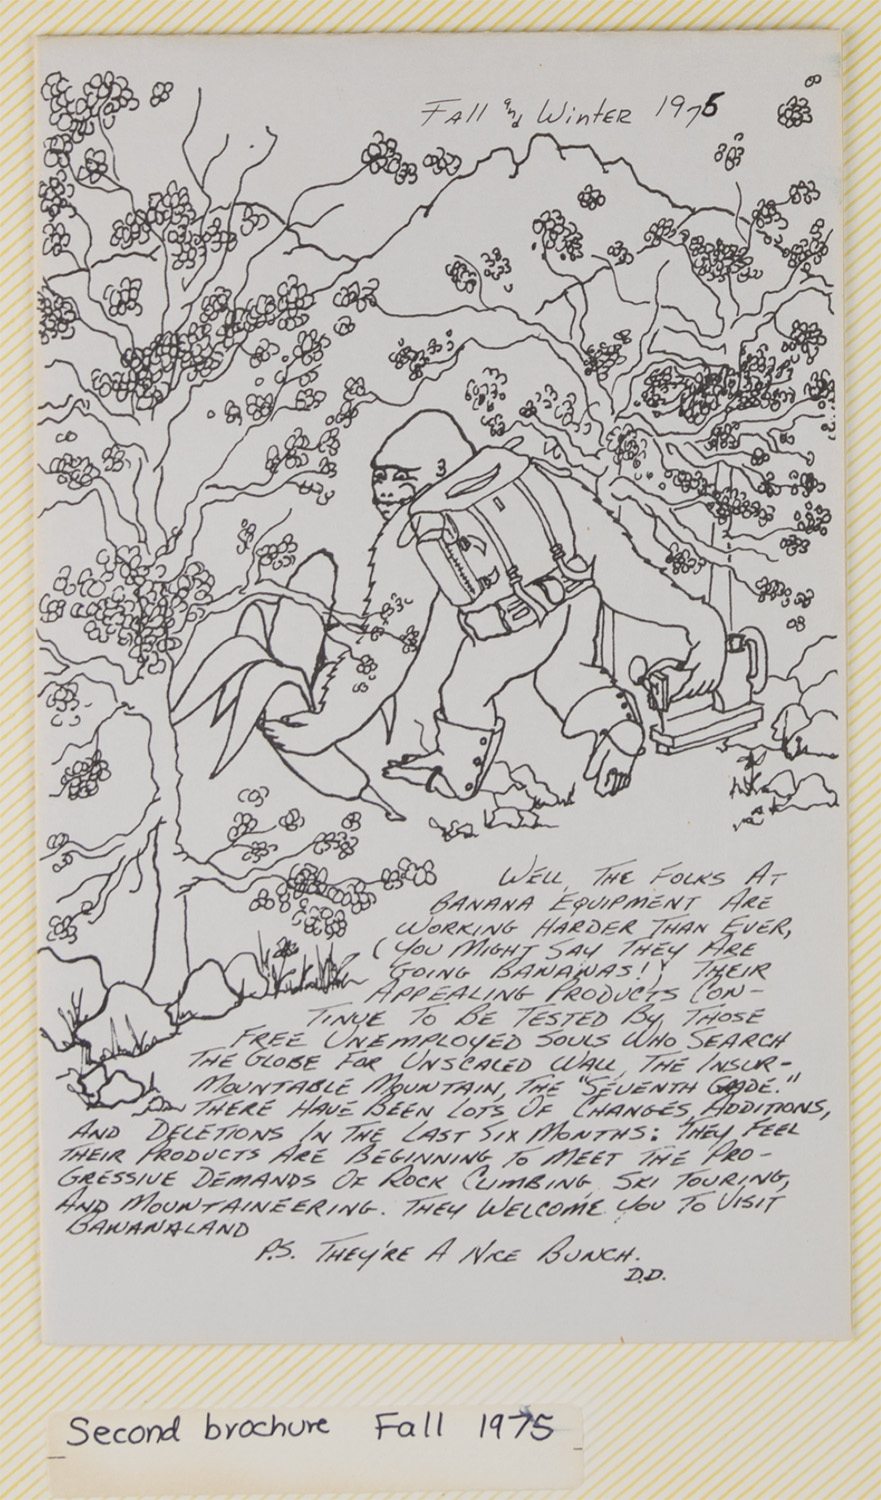 Fall and Winter 1975
Well, The Folks At
Banana Equipment Are
Working Harder Than Ever,
(You Might Say They Are
Going Bananas!) Their
Appealing Products Con-
tinue To Be Tested By Those
Free Unemployed Souls Who Search
The Globe For Unscaled Wall, The Insur-
mountable Mountain, The "Seventh Grade."
There Have Been Lots Of Changes, Additions,
And Deletions In The Last Six Months: They Feel
Their Products Are Beginning To Meet The Pro-
gressive Demands Of Rock Climbing, Ski Touring,
And Mountaineering. They Welcome You To Visit
Bananaland
P.S. They're A Nice Bunch.
D.D.
Second brochure Fall 1975